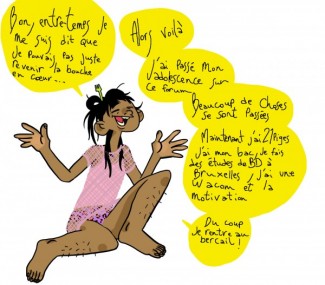 Bon, entre temps je
me suis dit que
je pouvais pas juste
revenir la bouche
en cœur...
Alors voilà
J'ai passé mon
adolescence sur
ce forum
Beaucoup de choses
se sont passées
Maintenant j'ai 21 piges
j'ai mon bac, je fais
des études de BD à
Bruxelles, j'ai une
Wacom et la
motivation
Du coup
je rentre au
bercail !